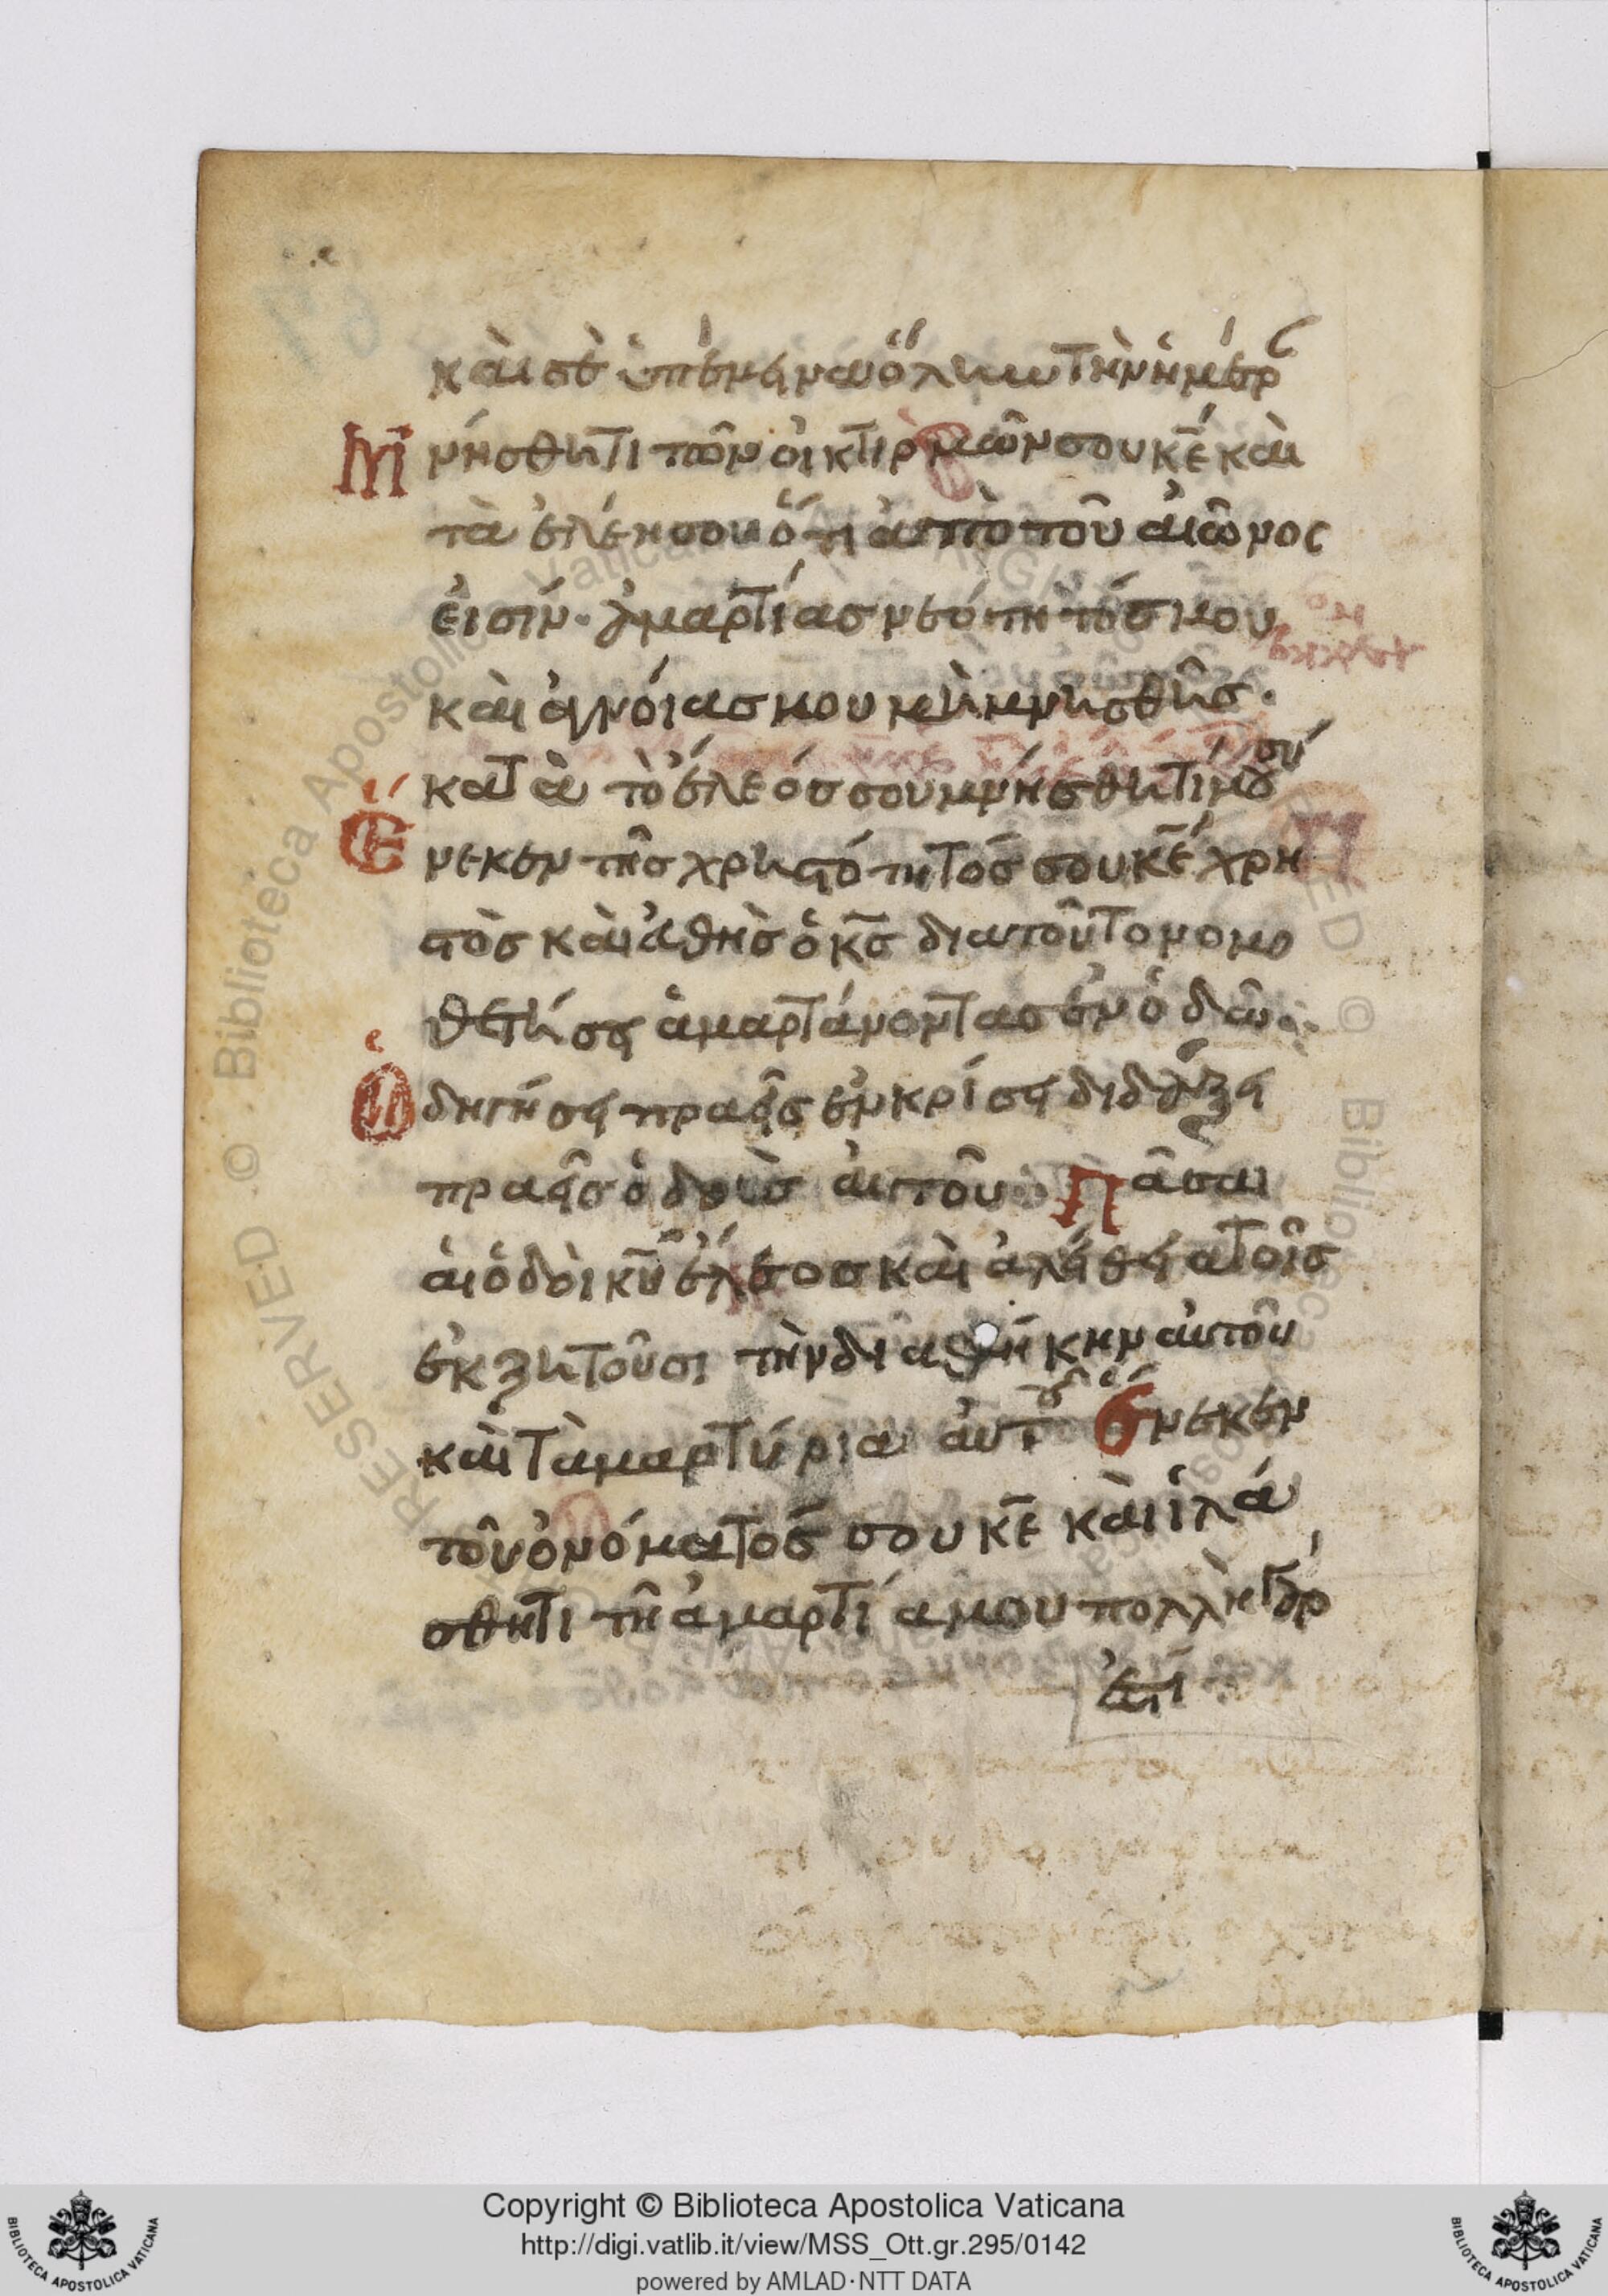 καὶ σὲ ὑπέμεινα ὅλην τὴν ἡμέρ
Μνήσθητι τῶν οἰκτιρμῶν σου κ̅ε̅ καὶ
τὰ ἐλέη σου ὅτι ἀπὸ τοῦ αἰῶνος
εἰσίν· ἁμαρτίας νεότητός μου
καὶ ἀγνοίας μου μὴ μνησθῇς·
κατὰ τὸ ἔλεός σου μνήσθητί μου σύ
Ἕνεκεν τῆς χρηστότητός σου κ̅ε̅ χρη
στὸς καὶ εὐθὴς ὁ κ̅ς̅ διατοῦτο νομο
θετήσει ἁμαρτάνοντας ἐν ὁδῶ·
Ὁδηγήσει πραεῖς ἐν κρίσει διδάξει
πραεῖς ὁδοὺς αὐτοῦ· Πᾶσαι
αἱ ὁδοὶ κ̅υ̅ ἔλεος καὶ ἀλήθεια τοῖς
ἐκζητοῦσι τὴν διαθήκην αὐτοῦ
καὶ τὰ μαρτύρια αὐτοῦ Ἕνεκεν
τοῦ ὀνόματός σου κ̅ε̅ καὶ ἱλά
σθητι τῆ ἁμαρτία μου πολλὴ γάρ
ἐστί
Copyright © Biblioteca Apostolica Vaticana
http://digi.vatlib.it/view/MSS_Ott.gr.295/0142
powered by AMLAD·NTT DATA
BIBLIOTECA APOSTOLICA VATICANA
BIBLIOTECA APOSTOLICA VATICANA